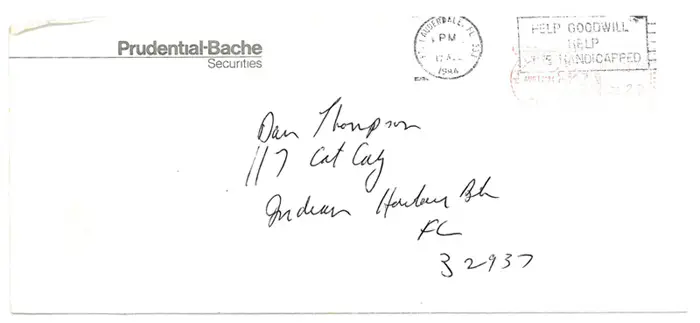 Prudential-Bache
Securities
LAUDERDALE, FL 333
PM
1986
HELP GOODWILL
HELP
THE HANDICAPPED
Dan Thompson
117 Cat Cay
Indian Harbour Bh
FL
32937